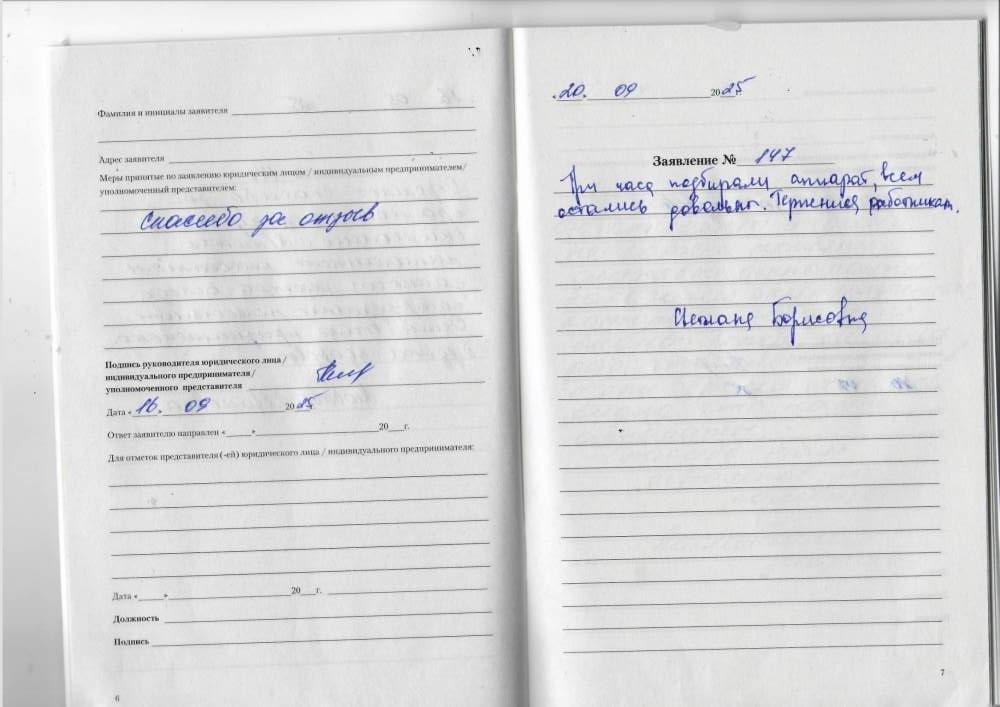 Фамилия и инициалы заявителя
Адрес заявителя
Меры принятые по заявлению юридическим лицом / индивидуальным предпринимателем/
уполномоченный представителем:
Спасибо за отзыв
Подпись руководителя юридического лица /
индивидуального предпринимателя /
уполномоченного представителя
Дата « 16 . 09 2025г.
Ответ заявителю направлен «_____»__________20___г.
Для отметок представителя (-ей) юридического лица / индивидуального предпринимателя:
Дата «_____»__________20___г.
Должность
Подпись
6
«20. 09 2025г.
Заявление № 147
Три часа подбирали аппарат, всем
остались довольны. Терпения работникам.
Борисовна
7